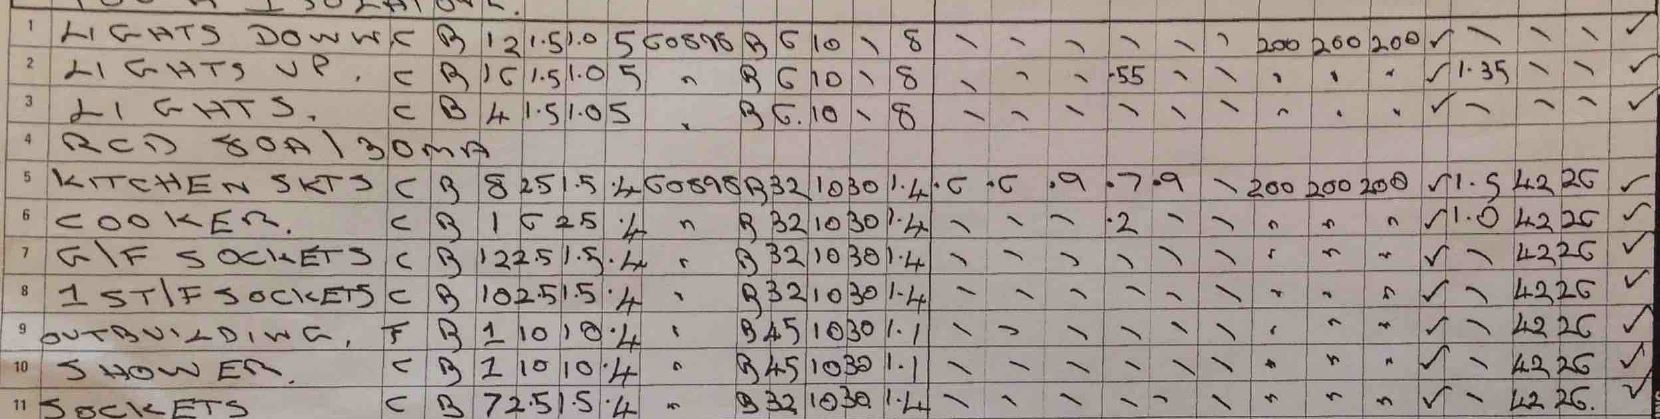 1 LIGHTS DOWN C B 12 1.5 1.0 5 60898 B 6 10 \ 8 \ \ \ \ \ \ 200 200 200 ✓ \ \ \ ✓
2 LIGHTS UP. C B 16 1.5 1.0 5 " B 6 10 \ 8 \ \ \ .55 \ \ " " " ✓ 1.35 \ \ ✓
3 LIGHTS. C B 4 1.5 1.0 5 " B 6 10 \ 8 \ \ \ \ \ \ " " " ✓ \ \ \ ✓
4 RCD 80A\30mA
5 KITCHEN SKTS C B 8 2.5 1.5 .4 60898 B 32 10 30 1.4 .6 .6 .9 .7 .9 \ 200 200 200 ✓ 1.5 42 26 ✓
6 COOKER. C B 1 6 2.5 .4 " B 32 10 30 1.4 \ \ \ .2 \ \ " " " ✓ 1.0 42 26 ✓
7 G\F SOCKETS C B 12 2.5 1.5 .4 " B 32 10 30 1.4 \ \ \ \ \ \ " " " ✓ \ 42 26 ✓
8 1ST\F SOCKETS C B 10 2.5 1.5 .4 " B 32 10 30 1.4 \ \ \ \ \ \ " " " ✓ \ 42 26 ✓
9 OUTBUILDING. F B 1 10 10 .4 " B 45 10 30 1.1 \ \ \ \ \ \ " " " ✓ \ 42 26 ✓
10 SHOWER. C B 1 10 10 .4 " B 45 10 30 1.1 \ \ \ \ \ \ " " " ✓ \ 42 26 ✓
11 SOCKETS C B 7 2.5 1.5 .4 " B 32 10 30 1.4 \ \ \ \ \ \ " " " ✓ \ 42 26. ✓